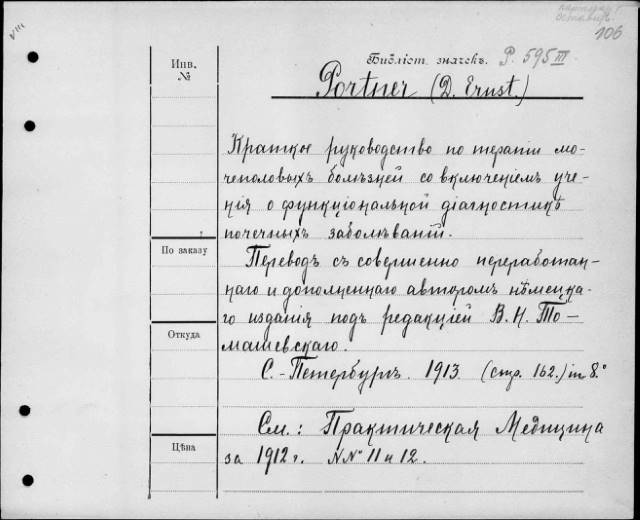 карточку
оставить.
VIII
106
Инв.
№
Бібліот. значекъ. P. 595 III
Portner (D. Ernst.)
Краткое руководство по терапіи мо-
чеполовыхъ болѣзней со включеніемъ уче-
нія о функціональной діагностикѣ
почечныхъ заболѣваній.
По заказу
Переводъ съ совершенно переработан-
наго и дополненнаго авторомъ нѣмецка-
го изданія подъ редакціей В. Н. То-
Откуда
машевскаго.
С.-Петербургъ. 1913. (стр. 162.) in 8.°
См.: Практическая Медицина
Цѣна
за 1912 г. NN° 11 и 12.